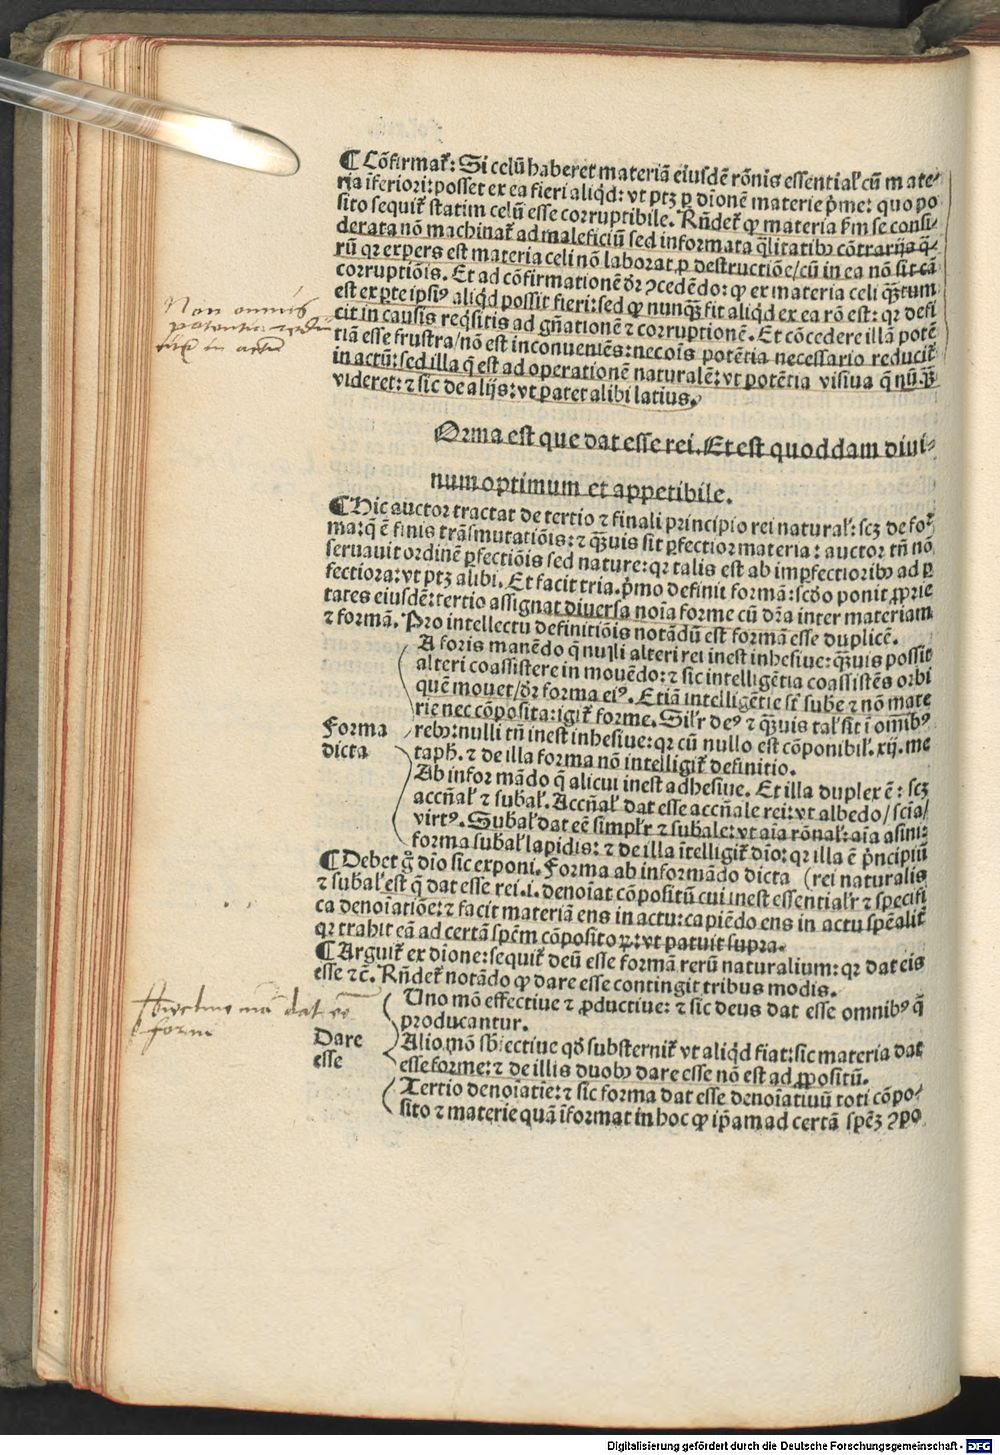 ¶ Cõfirmat᷑: Si celũ haberet materiã eiusdē rõnis essential᷑ cũ mate⸗
ria ĩferiori: posset ex ea fieri aliqd: vt ptꝫ ꝑ dĩonē materie p̃me: quo po
sito sequit᷑ statim celũ esse corruptibile. Rñdet᷑ ꝙ materia p̃m se consi⸗
derata nõ machinat᷑ ad maleficiũ sed informata q̃litatibꝰ cõtrarijs q̃⸗
rũ qꝛ expers est materia celi nõ laborat ꝑ destructiõe/cũ in ea nõ sit cã
corruptiõis. Et ad cõfirmationē dꝛ ꝯcedēdo: ꝙ ex materia celi q̃ꝫtum
est ex ꝑte ipsiꝰ aliqd possit fieri: sed ꝙ nunqꝫ̃ fit aliqd ex ea rõ est: qꝛ defi
cit in causis reqsitis ad gñationē ⁊ corruptionē. Et cõcedere illã potē
tiã esse frustra/nõ est inconueniēs: nec oĩs potētia necessario reducit᷑
in actũ: sed illa q̃ est ad operationē naturalē: vt potētia visiua q̃ nũqꝫ̃
videret: ⁊ sic de alijs: vt patet alibi latius.
Non omnis
potentia redu
citur in actu
Orma est que dat esse rei. Et est quoddam diui⸗
num optimum et appetibile.
¶ Hic auctor tractat de tertio ⁊ finali principio rei natural᷑: scꝫ de for
ma: q̃ ē finis trãsmutatiõis: ⁊ qꝫ̃uis sit ꝑfectior materia: auctor tñ nõ
seruauit ordinē ꝑfectiõis sed nature: qꝛ talis est ab imꝑfectioribꝰ ad ꝑ
fectiora: vt ptꝫ alibi. Et facit tria. p̃mo definit formã: scdo ponit ꝓprie
tates eiusdē: tertio assignat diuersa noĩa forme cũ dr̃a inter materiam
⁊ formã. Pro intellectu definitiõis notãdũ est formã esse duplicē.
Forma
dicta
A foris manēdo q̃ nulli alteri rei inest inhesiue: qꝫ̃uis possit
alteri coassistere in mouēdo: ⁊ sic intelligētia coassistēs orbi
quē mouet/dꝛ forma eiꝰ. Etiã intelligētie st̃ sube ⁊ nõ mate
rie nec cõposita: igit᷑ forme. Sil᷑r deꝰ ⁊ qꝫ̃uis tal᷑ sit ĩ omĩbꝰ
rebꝰ: nulli tñ inest inhesiue: qꝛ cũ nullo est cõponibil᷑. xij. me
taph. ⁊ de illa forma nõ intelligit᷑ definitio.
Ab informãdo q̃ alicui inest adhesiue. Et illa duplex ē: scꝫ
accñal᷑ ⁊ subal᷑. Accñal᷑ dat esse accñale rei: vt albedo/scĩa/
virtꝰ. Subal᷑ dat eē simpl᷑r ⁊ subale: vt aĩa rõnal᷑: aĩa asini:
forma subal᷑ lapidis: ⁊ de illa ĩtelligit᷑ dĩo: qꝛ illa ē p̃ncipiũ
¶ Debet g̊ dĩo sic exponi. Forma ab informãdo dicta (rei naturalis
⁊ subal᷑ est q̃ dat esse rei. i. denoĩat cõpositũ cui inest essential᷑r ⁊ specifi
ca denoĩatiõe: ⁊ facit materiã ens in actu: capiēdo ens in actu spēalit᷑
qꝛ trahit eã ad certã spēm cõpositoꝝ: vt patuit supra.
¶ Arguit᷑ ex dĩone: sequit᷑ deũ esse formã rerũ naturalium: qꝛ dat eis
esse ⁊c̃. Rñdet᷑ notãdo ꝙ dare esse contingit tribus modis.
Dare
esse
Uno mõ effectiue ⁊ ꝓductiue: ⁊ sic deus dat esse omnibꝰ q̃
producantur.
Alio mõ sbiectiue qd substernit᷑ vt aliqd fiat: sic materia dat
esse forme: ⁊ de illis duobꝰ dare esse nõ est ad ꝓpositũ.
Tertio denoĩatĩe: ⁊ sic forma dat esse denoĩatiuũ toti cõpo⸗
sito ⁊ materie quã ĩformat in hoc ꝙ ip̃am ad certã spēꝫ ꝯpo
mã dat eē
forme
Digitalisierung gefördert durch die Deutsche Forschungsgemeinschaft - DFG